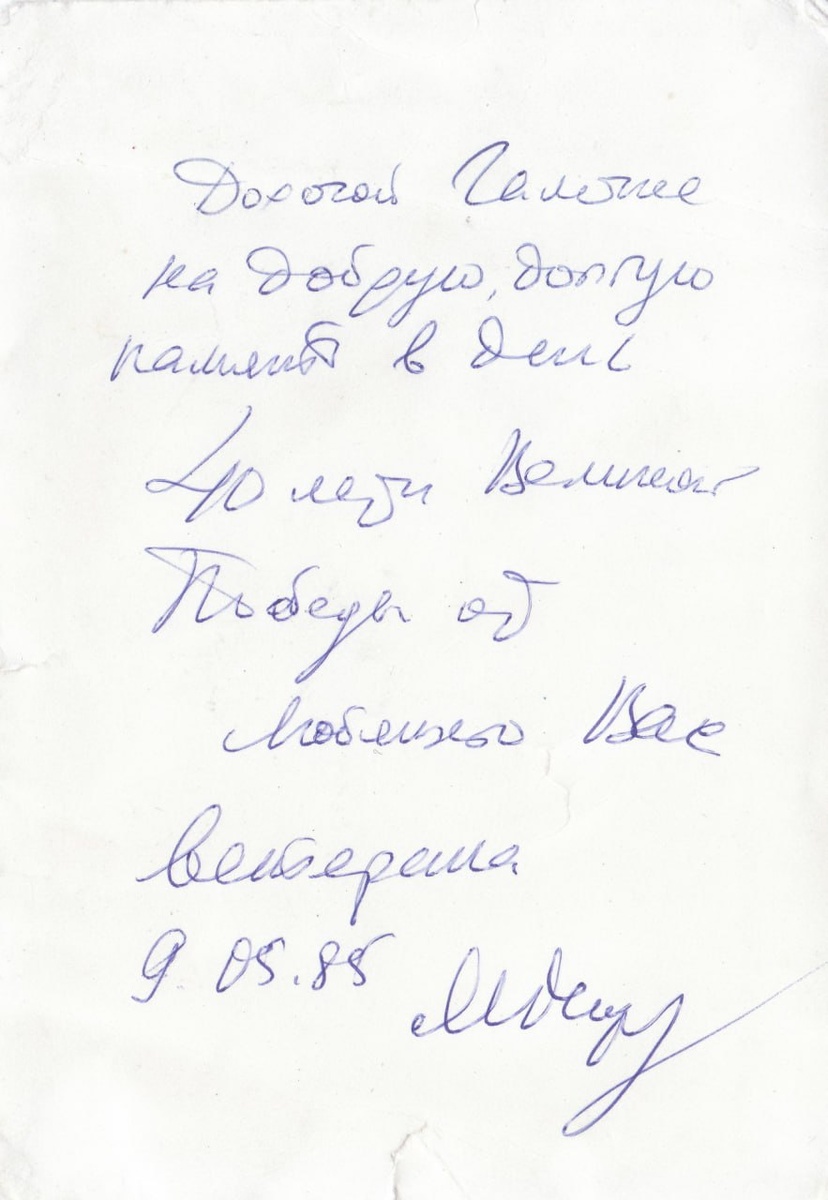 Дорогой Галочке
на добрую, долгую
память в день
40 летия Великой
Победы от
любящего Вас
ветерана
9.05.85